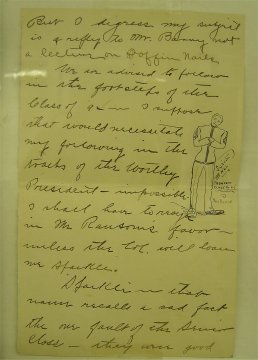 But I degress my subject
is a reply to Mr. Benny not
a lecture on Coffin Nails.
We are advised to follow
in the footsteps of the
Class of 92 — I suppose
that would necessitate
my following in the
tracks of the Worthy
President — impossible.
I shall have to resign
in Mr Ransoms favor —
unless the Col. will loan
me Sparkle.
Sparkle in that
name recalls a sad fact
the one fault of the Senior
Class — they were good